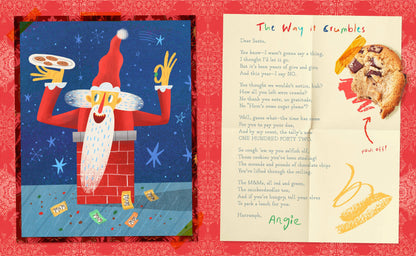 The Way it Crumbles
Dear Santa,
You know—I wasn't gonna say a thing,
I thought I'd let it go.
But it's been years of give and give
And this year—I say NO.
You thought we wouldn't notice, huh?
How all you left were crumbs?
No thank you note, no gratitude,
No "Here's some sugar plums!"
Well, guess what—the time has come
For you to pay your dues,
And by my count, the tally's
ONE HUNDRED FORTY TWO.
So cough 'em up you selfish elf,
Those cookies you've been stealing!
The mounds and pounds of chocolate chips
You've lifted through the ceiling.
The M&Ms, all red and green,
The snickerdoodles too,
And if you're hungry, tell your elves
To pack a lunch for you.
Harrumph,
Angie
your off!